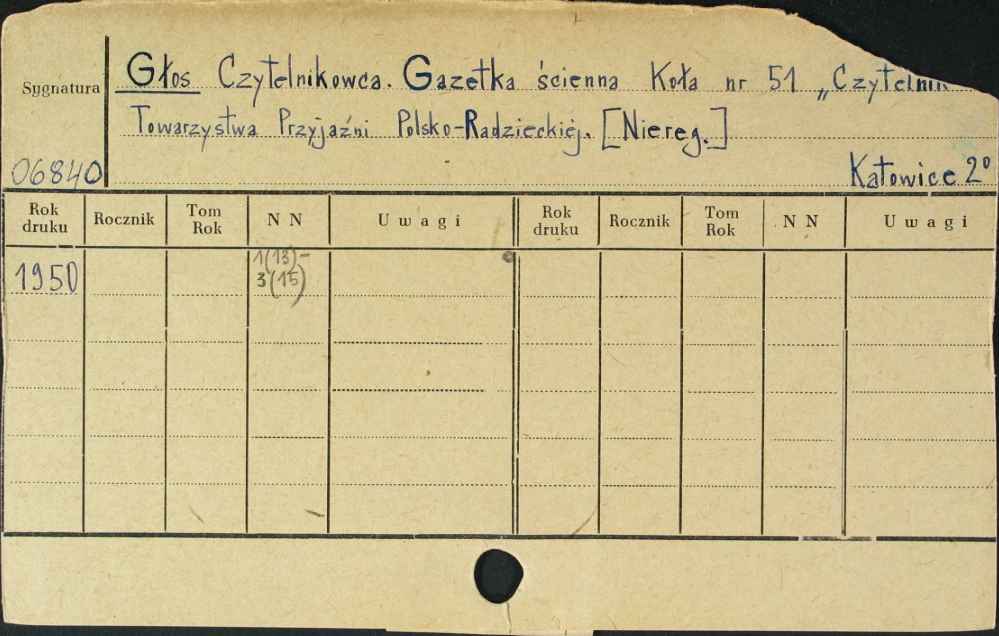 Głos Czytelnikowca. Gazetka ścienna Koła nr 51 „Czytelnik
Sygnatura
Towarzystwa Przyjaźni Polsko-Radzieckiej. [Niereg.]
06840
Katowice 2°
Rok druku Rocznik Tom Rok N N U w a g i Rok druku Rocznik Tom Rok N N U w a g i
1950 1(13)-
3(15)